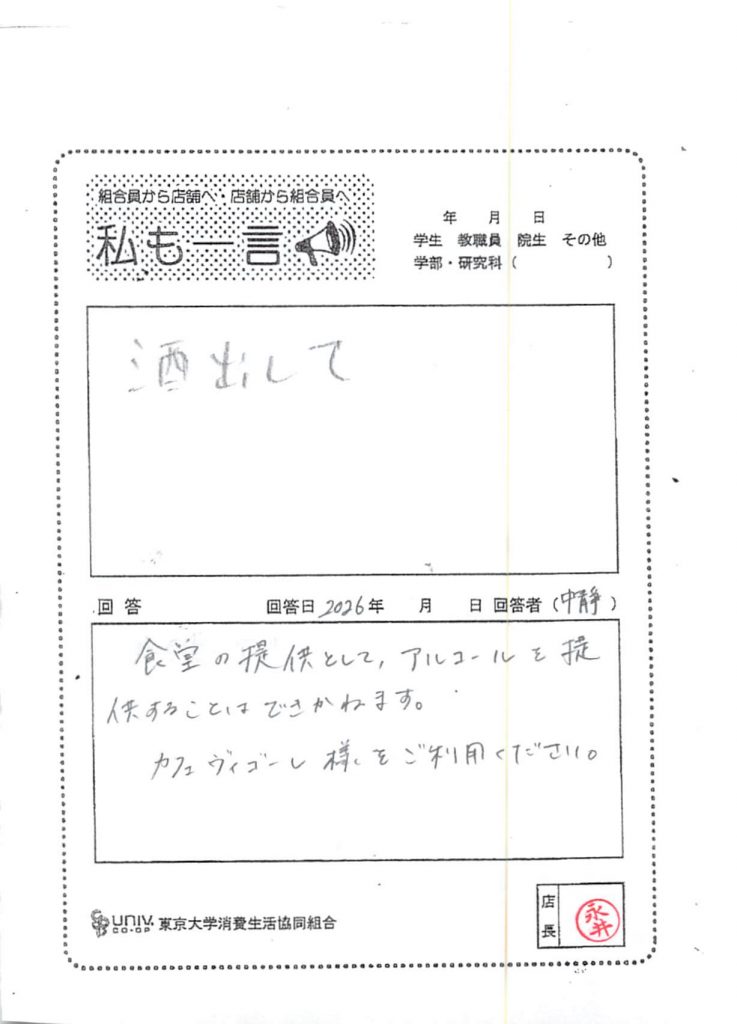 組合員から店舗へ・店舗から組合員へ
私も一言
年 月 日
学生 教職員 院生 その他
学部・研究科 ( )
酒出して
回答 回答日 2026年 月 日 回答者 (中静)
食堂の提供として、アルコールを提
供することはできかねます。
カフェヴィゴーレ様をご利用ください。
UNIV. CO-OP 東京大学消費生活協同組合
店長 永井